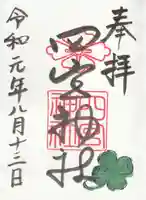 奉拝
四宮神社
令和元年八月十三日